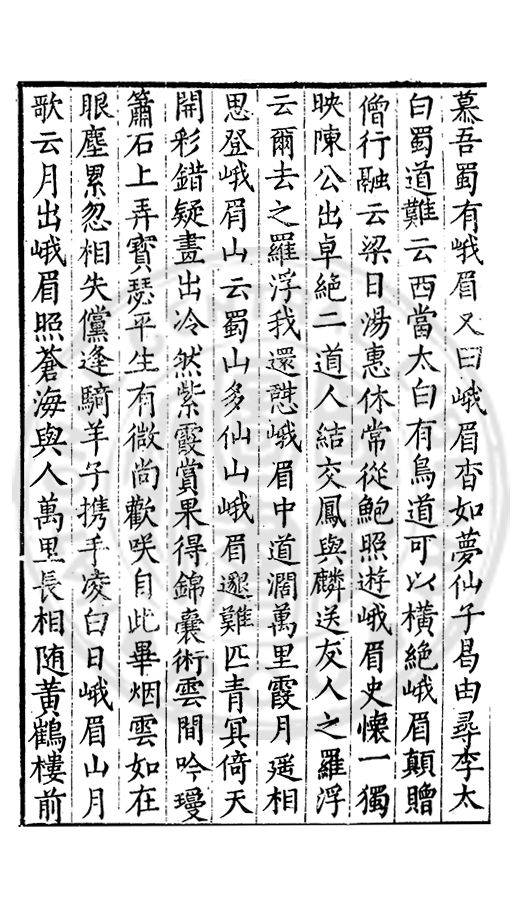 慕吾蜀有峨眉又曰峨眉杳如夢仙子曷由尋李太
白蜀道難云西當太白有鳥道可以橫絶峨眉顛贈
僧行融云梁日湯惠休常從鮑照遊峨眉史懷一獨
映陳公出卓絶二道人結交鳳與麟送友人之羅浮
云爾去之羅浮我還憩峨眉中道濶萬里霞月遥相
思登峨眉山云蜀山多仙山峨眉邈難匹青冥倚天
開彩錯疑畫出冷然紫霞賞果得錦囊術雲間吟瓊
簫石上弄寳瑟平生有微尚歡咲自此畢烟雲如在
眼塵累忽相失儻逢騎羊子携手凌白日峨眉山月
歌云月出峨眉照蒼海與人萬里長相随黃鶴樓前